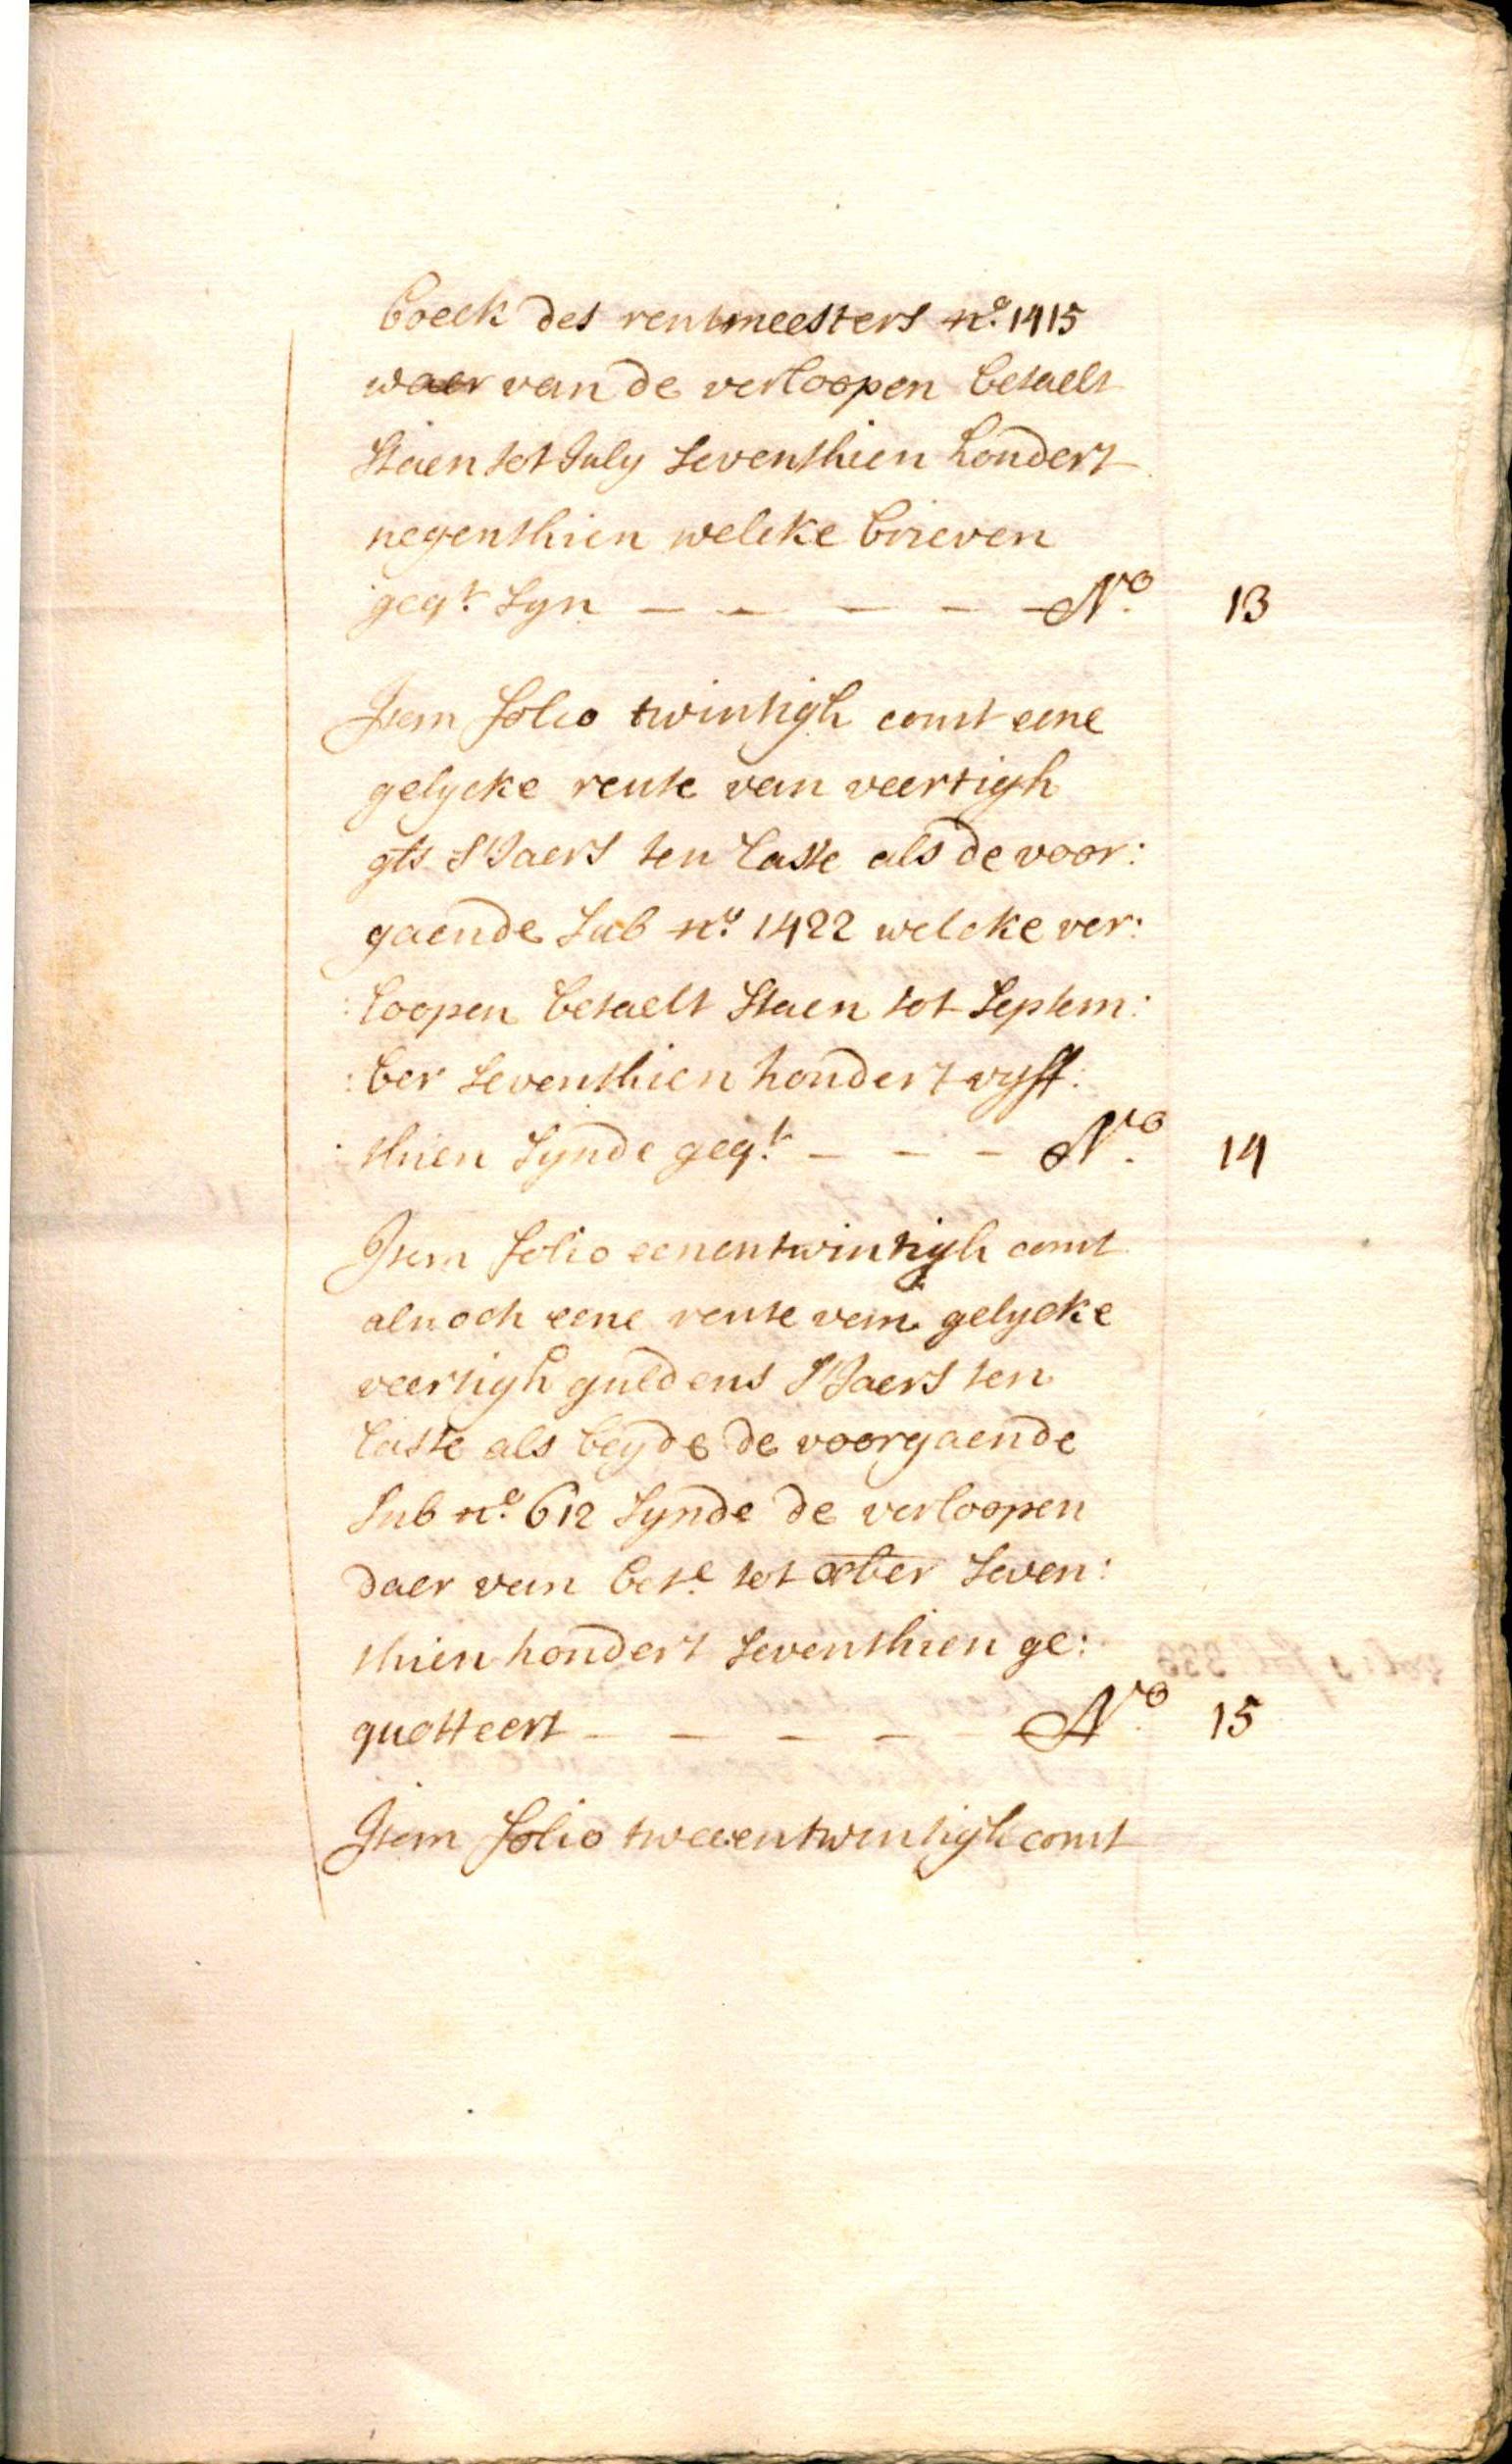 boeck des rentmeesters no. 1415
waer van de verloopen betaelt
staen tot July seventhien hondert
negenthien welcke brieven
geqt. syn — — — — — No. 13
Item folio twintigh comt eene
gelycke rente van veertigh
gls. s'Jaers ten laste als de voor:
gaende sub no. 1422 welcke ver:
:loopen betaelt staen tot septem:
:ber seventhien hondert vyff:
:thien synde geqt. — — — No. 14
Item folio eenentwintigh comt
alnoch eene rente van gelycke
veertigh guldens s'Jaers ten
laste als beyde de voorgaende
sub no. 612 synde de verloopen
daer van bete. tot ber seven:
thien hondert seventhien ge:
quotteert — — — — No. 15
Item folio tweeentwintigh comt